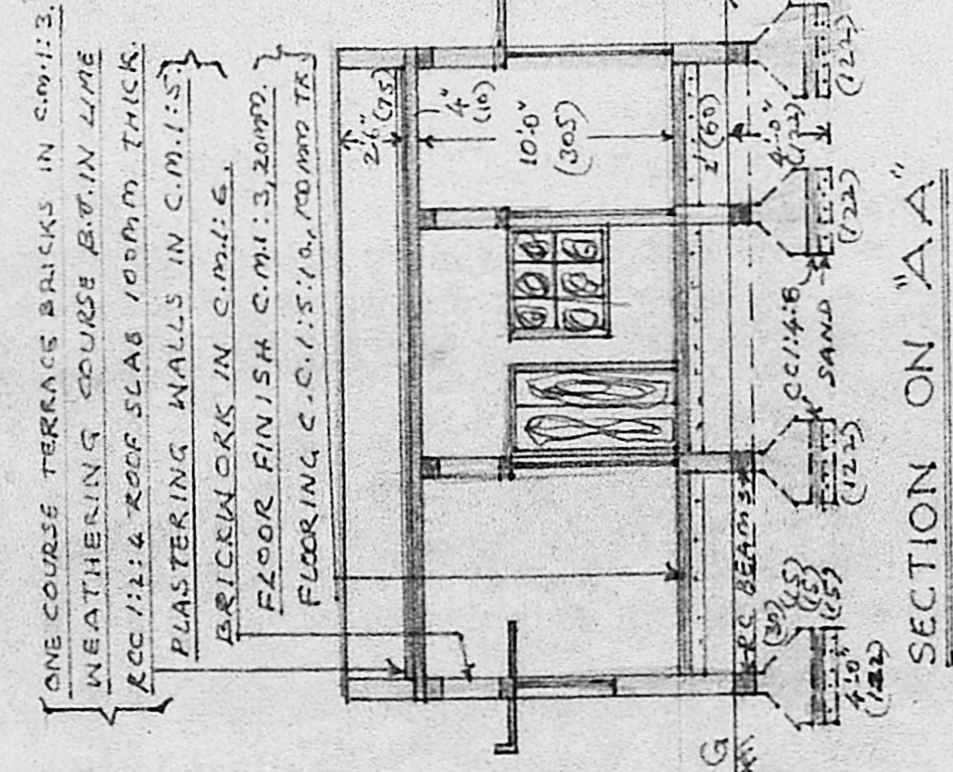 ONE COURSE TERRACE BRICKS IN C.M.1:3.
WEATHERING COURSE B.J. IN LIME
RCC 1:2:4 ROOF SLAB 100MM THICK.
PLASTERING WALLS IN C.M.1:5.
BRICKWORK IN C.M.1:6.
FLOOR FINISH C.M.1:3, 20MM.
FLOORING C.C.1:5:10, 100MM TK.
2'.6"
(75)
4"
(10)
10'.0"
(305)
2' (60)
4'.0"
(122)
(122)
(122)
CC 1:4:8
SAND
(122)
RC BEAMS
(30)
(15)
(15)
(15)
4'.0"
(122)
G
SECTION ON "AA"